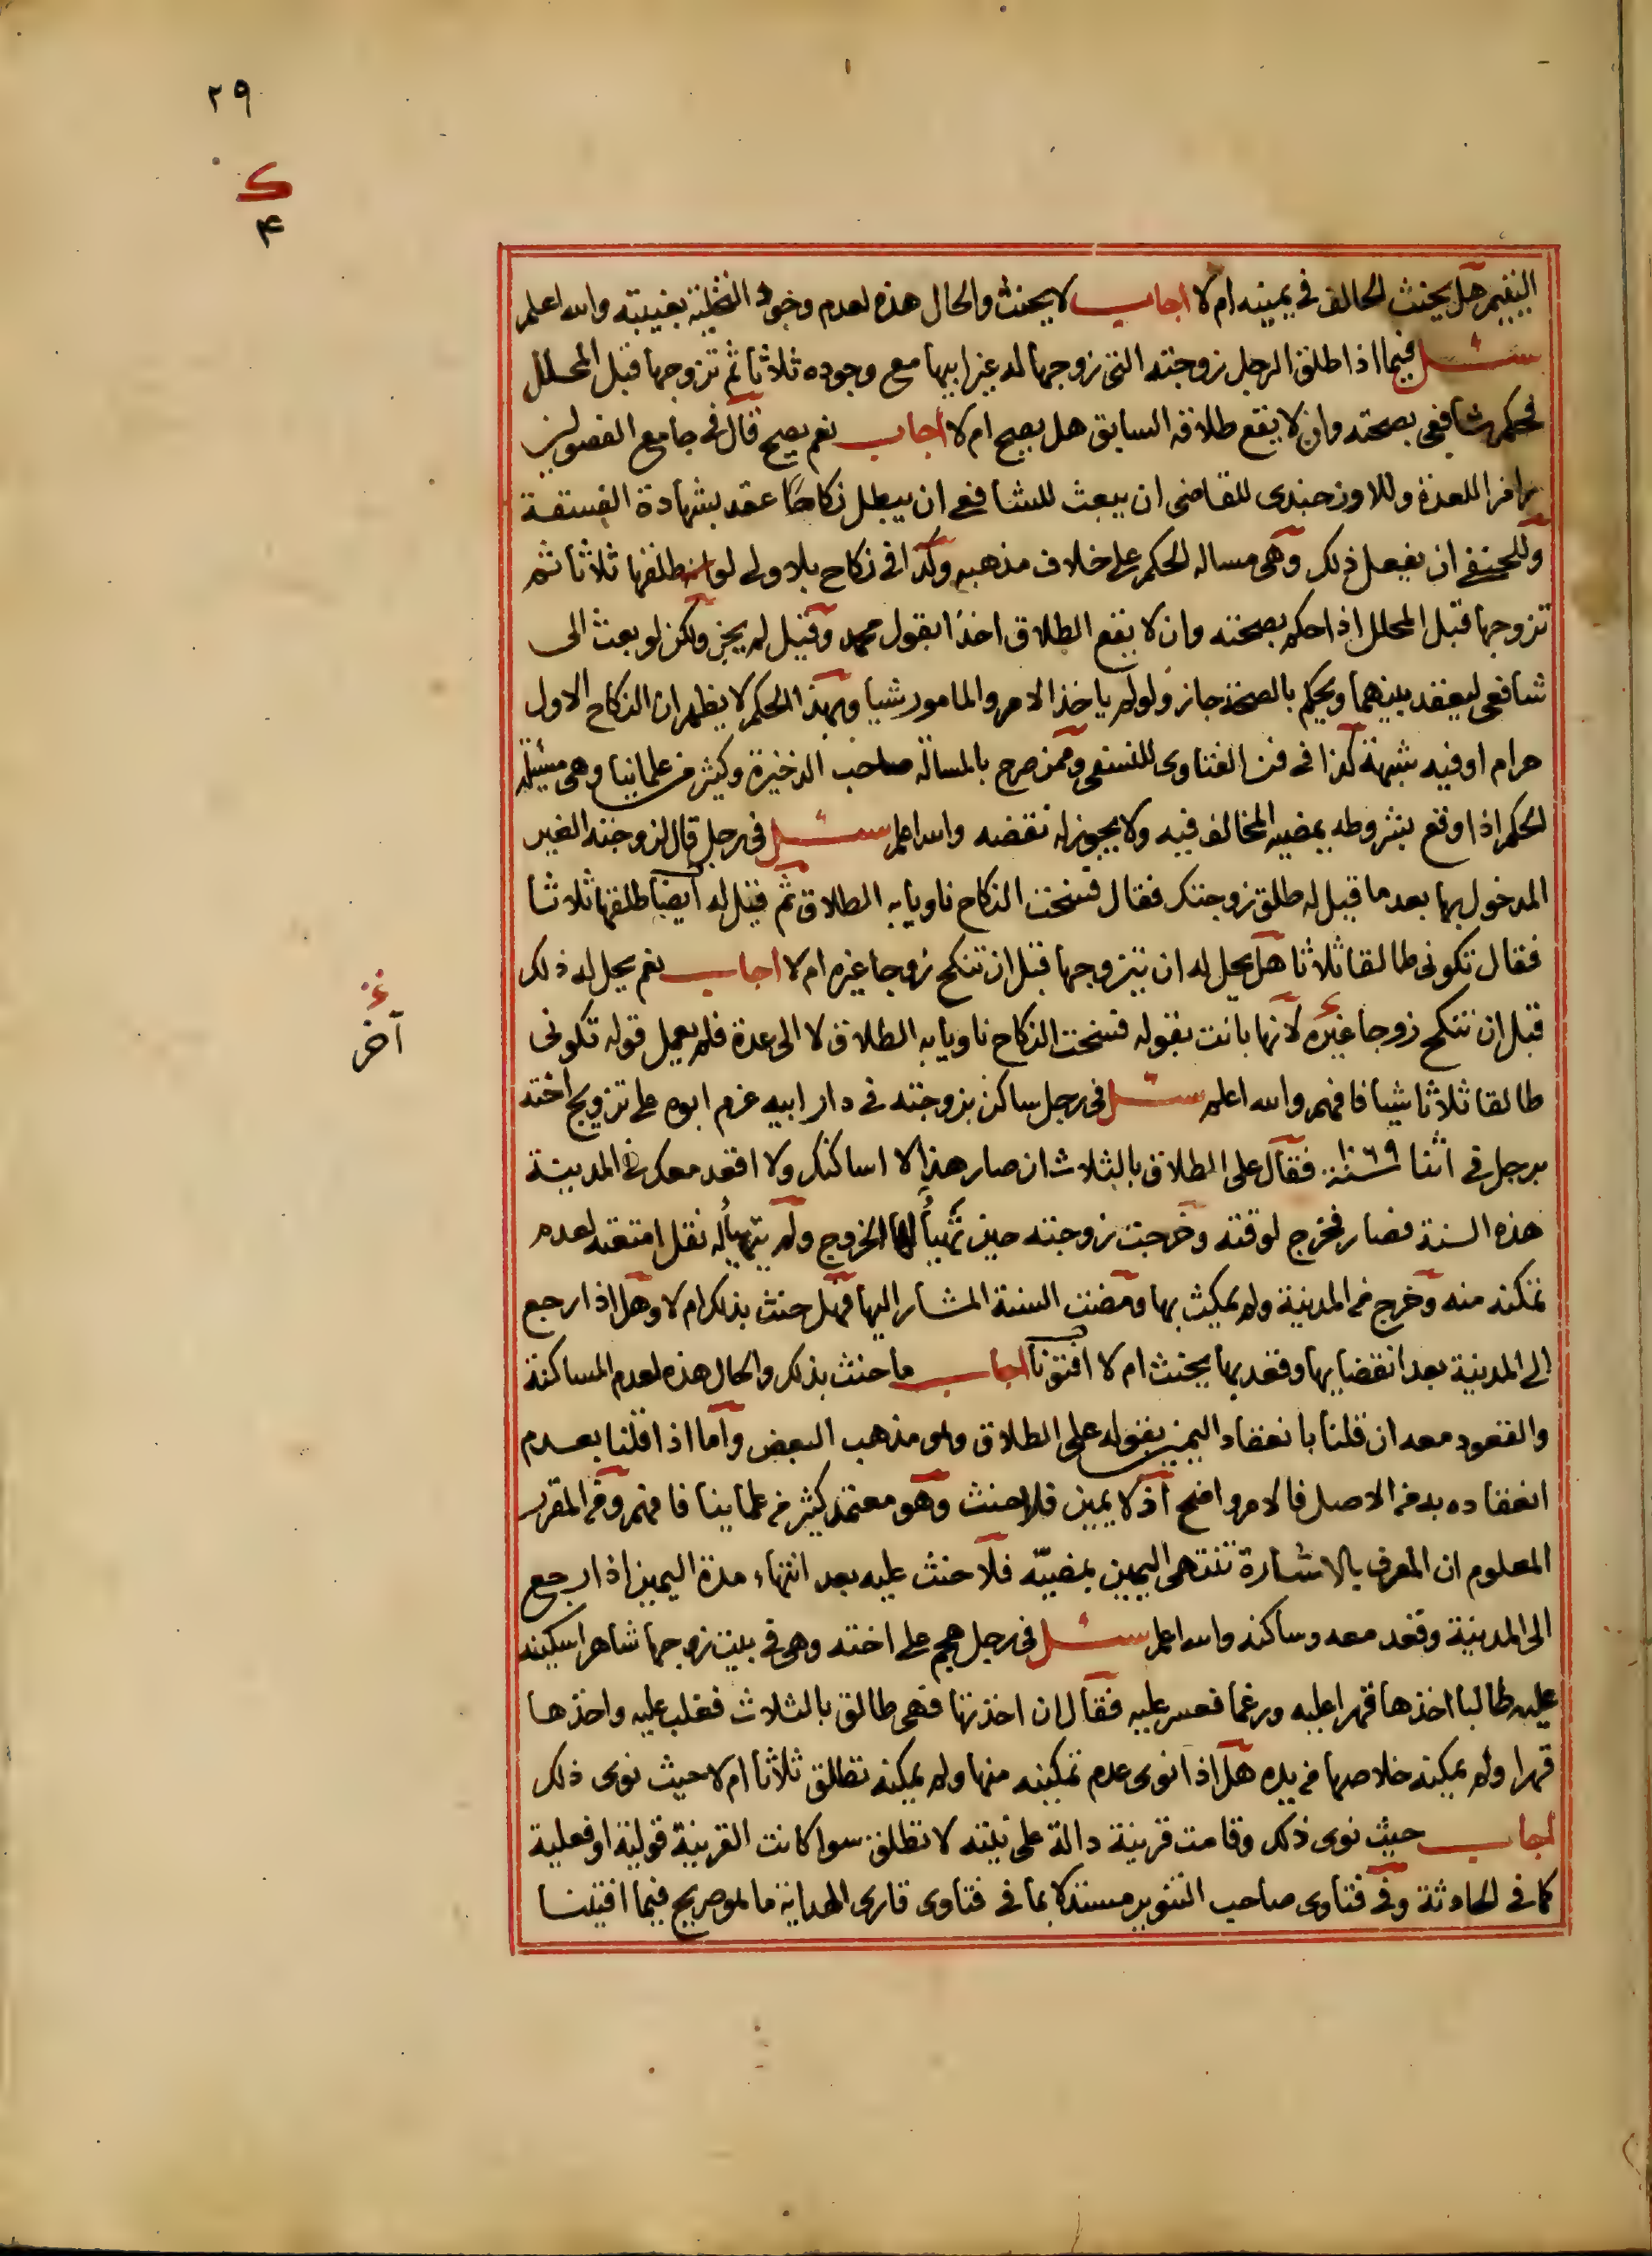 ٢٩
ک
٤
اليتيم هل يحنث الحالف في يمينه ام لا اجاب لا يحنث والحال هذه لعدم وجود التخلية بغيبته والله اعلم
سئل فيما اذا طلق الرجل زوجته التي زوجها له غير ابيها مع وجوده ثلاثا ثم تزوجها قبل المحلل
فحكم شافعي بصحته وان لا يقع طلاقه السابق هل يصح ام لا اجاب نعم يصح قال في جامع الفصولين
رامزا للعدة وللاوزجندى للقاضى ان يبعث للشافعى ان يبطل نكاحا عقد بشهادة الفسقة
وللحنفى ان يفعل ذلك وهى مساله الحكم على خلاف مذهبه وكذا في نكاح بلا ولى لو طلقها ثلاثا ثم
تزوجها قبل المحلل اذا حكم بصحته وان لا يقع الطلاق اخذا بقول محمد وقيل لم يجز ولكن لو بعث الى
شافعى ليعقد بينهما ويحكم بالصحة جاز ولو لم ياخذ الامر والمامور شيا وبهذا الحكم لا يظهر ان النكاح الاول
حرام او فيه شبهة كذا في فن الفتاوى للنسفى وممن صرح بالمسالة صاحب الذخيرة وكثير من علمائنا وهى مسئلة
الحكم اذا وقع بشروطه يمضيه المخالف فيه ولا يجوز له نقضه والله اعلم سئل في رجل قال لزوجته الغير
المدخول بها بعد ما قيل له طلق زوجتك فقال فسخت النكاح ناويا به الطلاق ثم قيل له ايضا طلقها ثلاثا
فقال تكونى طالقا ثلاثا هل يحل له ان يتزوجها قبل ان تنكح زوجا غيره ام لا اجاب نعم يحل له ذلك
قبل ان تنكح زوجا غيره لانها بانت بقوله فسخت النكاح ناويا به الطلاق لا الى عدة فلم يعمل قوله تكونى
آخر
طالقا ثلاثا شيا فافهم والله اعلم سئل في رجل ساكن بزوجته في دار ابيه عزم ابوه على تزويج اخته
برجل في اثنا سنة ١٠٦٩ فقال على الطلاق بالثلاث ان صار هذا لا اساكنك ولا اقعد معك في المدينة
هذه السنة فصار فخرج لوقته وخرجت زوجته حين تهيأ لها الخروج ولم يتهيأ له نقل امتعته لعدم
تمكنه منه وخرج من المدينة ولم يمكث بها ومضت السنة المشار اليها فهل حنث بذلك ام لا وهل اذا رجع
الى المدينة بعد انقضايها وقعد بها يحنث ام لا افتونا اجاب ما حنث بذلك والحال هذه لعدم المساكنة
والقعود معه ان قلنا بانعقاد اليمين بقوله على الطلاق وهو مذهب البعض واما اذا قلنا بعدم
انعقاده به من الاصل فالامر واضح اذ لا يمين فلا حنث وهو معتمد كثير من علماينا فافهم ومن المقرر
المعلوم ان المعرف بالاشارة تنتهى اليمين بمضيه فلا حنث عليه بعد انتهاء مدة اليمين اذا رجع
الى المدينة وقعد معه وساكنه والله اعلم سئل في رجل هجم على اخته وهى في بيت زوجها شاهرا سكينه
عليه طالبا اخذها قهرا عليه ورغما فعسر عليه فقال ان اخذتها فهى طالق بالثلاث فغلب عليه واخذها
قهرا ولم يمكنه خلاصها من يده هل اذا نوى عدم تمكينه منها ولم يمكنه تطلق ثلاثا ام لا حيث نوى ذلك
اجاب حيث نوى ذلك وقامت قرينة دالة على نيته لا تطلق سوا كانت القرينة قولية او فعلية
كما في الحادثة وفى فتاوى صاحب التنوير مستدلا بما في فتاوى قارى الهداية ما هو صريح فيما افتينا